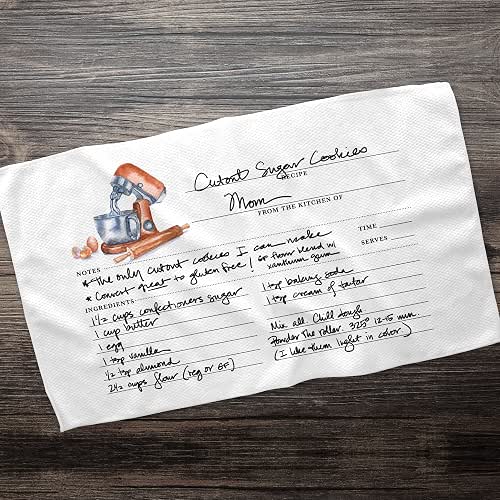 Cutout Sugar Cookies
RECIPE
Mom
FROM THE KITCHEN OF
NOTES
* The only cutout cookies I can make
* Convert great to gluten free! GF flour blend w/
xanthum gum
TIME
SERVES
INGREDIENTS
1 1/2 cups confectioners sugar
1 cup butter
1 egg
1 tsp vanilla
1/2 tsp almond
2 1/2 cups flour (reg or GF)
1 tsp baking soda
1 tsp cream of tartar
Mix all. Chill dough
Powder the roller. 325° 12-15 min.
(I like them light in color)